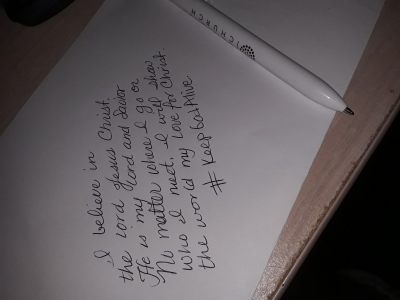 I believe in
the Lord Jesus Christ.
He is my Lord and Savior
No matter where I go or
who I meet, I will show
the world my Love for Christ.
# KeepGodAlive
ICHURCH